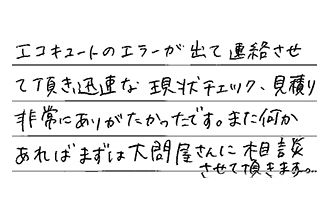 エコキュートのエラーが出て連絡させ
て頂き迅速な現状チェック、見積り
非常にありがたかったです。また何か
あればまずは大問屋さんに相談
させて頂きます。